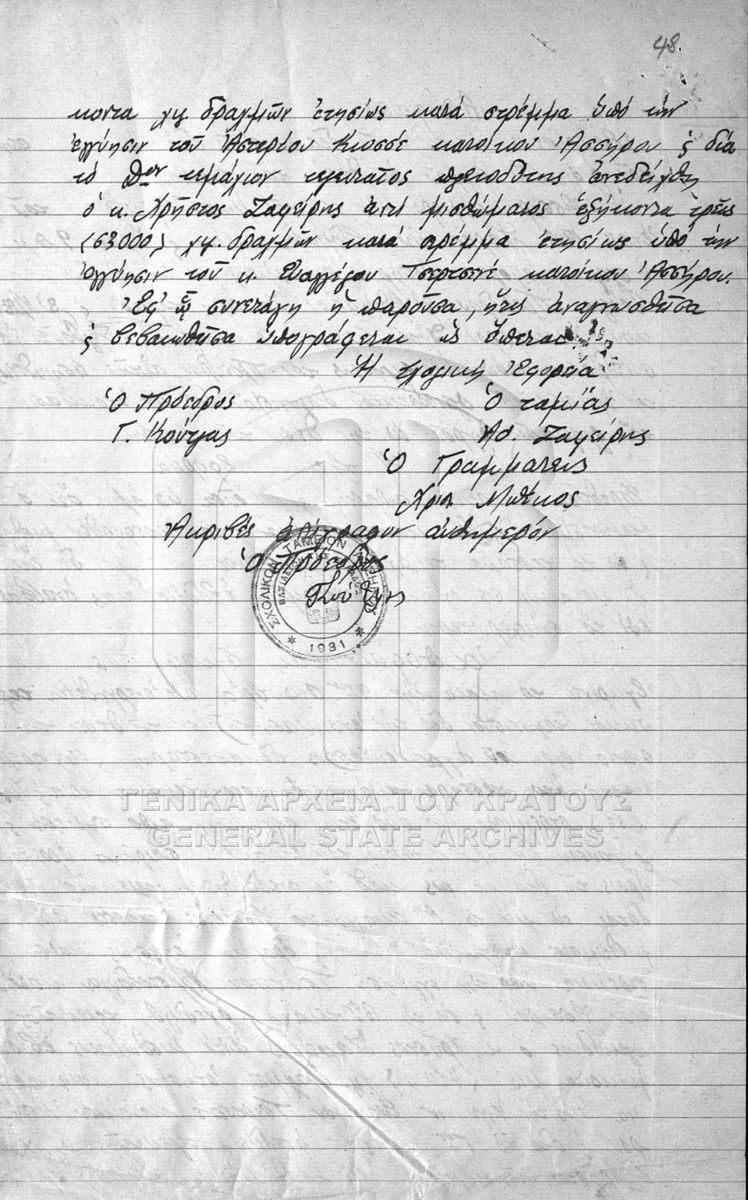 48.
κοντα χιλ. δραχμῶν ἐτησίως κατά στρέμμα ὑπό τήν
ἐγγύησιν τοῦ Ἀστερίου Κιοσσέ κατοίκου Ἀσσήρου ϛ διά
τό τεμάχιον τελευταῖος πλειοδότης ἀνεδείχθη
ὁ κ. Χρῆστος Ζαφείρης ἀντί μισθώματος ἑξήκοντα τρεῖς
(63000) χιλ. δραχμῶν κατά στρέμμα ἐτησίως ὑπό τήν
ἐγγύησιν τοῦ κ. Εὐαγγέλου κατοίκου Ἀσσήρου.
Ἐφ' ᾧ συνετάγη ἡ παροῦσα, ἥτις ἀναγνωσθεῖσα
ϛ βεβαιωθεῖσα ὑπογράφεται ὡς ἕπεται
Ἡ Σχολική Ἐφορεία
Ὁ Πρόεδρος Ὁ ταμίας
Γ. Κούτλας Ἀθ. Ζαφείρης
Ὁ Γραμματεύς
Χρισ. Μπίκος
Ἀκριβές ἀντίγραφον αὐθημερόν
Ὁ Πρόεδρος
ΣΧΟΛΙΚΟΝ ΤΑΜΕΙΟΝ
ΒΑΣΙΛΕΙΟΝ ΤΗΣ ΕΛΛΑΔΟΣ
* 1931 *
ΓΕΝΙΚΑ ΑΡΧΕΙΑ ΤΟΥ ΚΡΑΤΟΥΣ
GENERAL STATE ARCHIVES